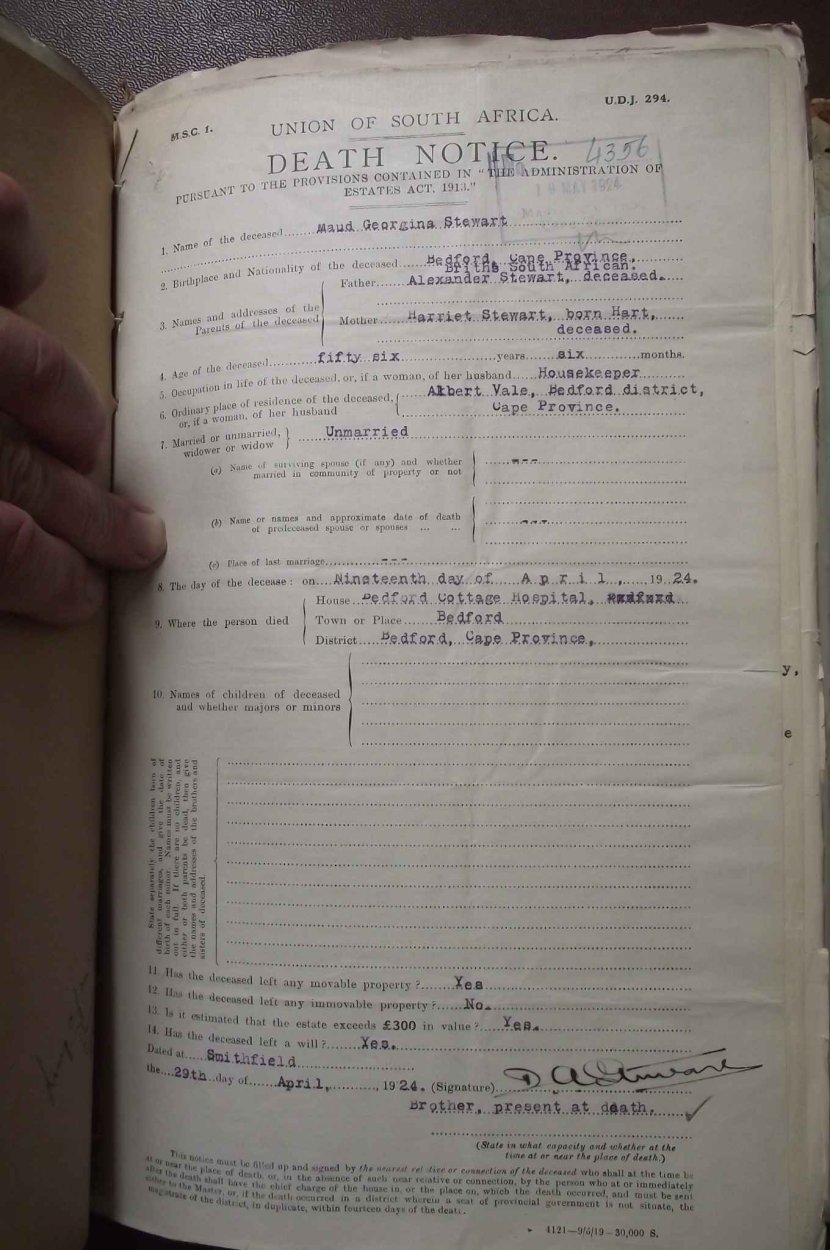 M.S.C. 1.
U.D.J. 294.
UNION OF SOUTH AFRICA.
DEATH NOTICE.
4356
PURSUANT TO THE PROVISIONS CONTAINED IN "THE ADMINISTRATION OF
ESTATES ACT, 1913."
MAY 1924
1. Name of the deceased Maud Georgina Stewart
2. Birthplace and Nationality of the deceased Bedford, Cape Province,
Briths South African.
3. Names and addresses of the Parents of the deceased
Father Alexander Stewart, deceased.
Mother Harriet Stewart, born Hart,
deceased.
4. Age of the deceased fifty six years six months.
5. Occupation in life of the deceased, or, if a woman, of her husband Housekeeper
6. Ordinary place of residence of the deceased, Albert Vale, Bedford district,
or, if a woman, of her husband Cape Province.
7. Married or unmarried, widower or widow Unmarried
(a) Name of surviving spouse (if any) and whether ---
married in community of property or not
(b) Name or names and approximate date of death
of predeceased spouse or spouses ... ... ---
(c) Place of last marriage ---
8. The day of the decease: on Nineteenth day of April, 1924.
House Bedford Cottage Hospital, Bedford
9. Where the person died Town or Place Bedford
District Bedford, Cape Province,
y,
10. Names of children of deceased
and whether majors or minors
e
State separately the children born of
different marriages, and give the date of
birth of each minor. Names must be written
out in full. If there are no children, and
either or both parents be dead, then give
the names and addresses of the brothers and
sisters of deceased.
11. Has the deceased left any movable property? Yes
12. Has the deceased left any immovable property? No.
13. Is it estimated that the estate exceeds £300 in value? Yes.
14. Has the deceased left a will? Yes.
Dated at Smithfield
the 29th day of April, 1924. (Signature) D A Stewart
Brother, present at death.
(State in what capacity and whether at the
time at or near the place of death.)
This notice must be filled up and signed by the nearest relative or connection of the deceased who shall at the time be
at or near the place of death, or, in the absence of such near relative or connection, by the person who at or immediately
after the death shall have the chief charge of the house in, or the place on, which the death occurred, and must be sent
either to the Master, or, if the death occurred in a district wherein a seat of provincial government is not situate, the
magistrate of the district, in duplicate, within fourteen days of the death.
4121—9/5/19—30,000 S.